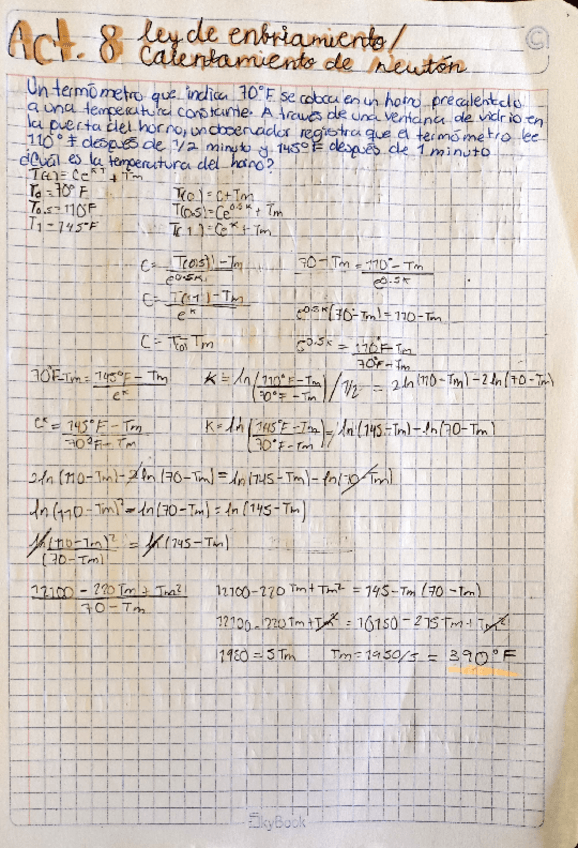 Act. 8 ley de enbriamiento/
Calentamiento de newtón
Un termómetro que indica 70°F se coloca en un horno precalentado
a una temperatura constante. A través de una ventana de vidrio en
la puerta del horno, un observador registra que el termómetro lee
110°F después de 1/2 minuto y 145°F después de 1 minuto
¿Cuál es la temperatura del horno?
T(t) = Ce^kt + Tm
T0 = 70°F T(0) = C + Tm
T0.5 = 110F T(0.5) = Ce^0.5k + Tm
T1 = 145°F T(1) = Ce^k + Tm
C = T(0.5) - Tm / e^0.5k 70 - Tm = 110° - Tm / e^0.5k
C = T(1) - Tm / e^k e^0.5k (70° - Tm) = 110 - Tm
C = T(0) - Tm e^0.5k = 110°F - Tm / 70°F - Tm
70°F - Tm = 145°F - Tm / e^k K = ln(110°F - Tm / 70°F - Tm) / 1/2 = 2ln(110 - Tm) - 2ln(70 - Tm)
e^k = 145°F - Tm / 70°F - Tm K = ln(145°F - Tm / 70°F - Tm) = ln(145 - Tm) - ln(70 - Tm)
2ln(110 - Tm) - 2ln(70 - Tm) = ln(145 - Tm) - ln(70 - Tm)
ln(110 - Tm)² = ln(70 - Tm) = ln(145 - Tm)
ln(110 - Tm)² / (70 - Tm) = ln(145 - Tm)
12100 - 220Tm + Tm² / 70 - Tm 12100 - 220Tm + Tm² = 145 - Tm (70 - Tm)
12100 - 220Tm + Tm² = 10150 - 215Tm + Tm²
1950 = 5Tm Tm = 1950/5 = 390°F
SkyBook